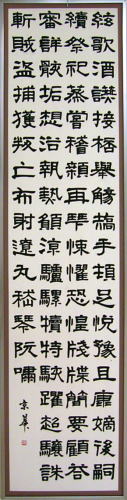 絃歌酒讌接桮舉觴矯手頓足悅豫且康嫡後嗣
續祭祀蒸嘗稽顙再拜悚懼恐惶牋牒簡要顧答
審詳骸垢想浴執熱願涼驢騾犢特駭躍超驤誅
斬賊盜捕獲叛亡布射遼丸嵇琴阮嘯
京華